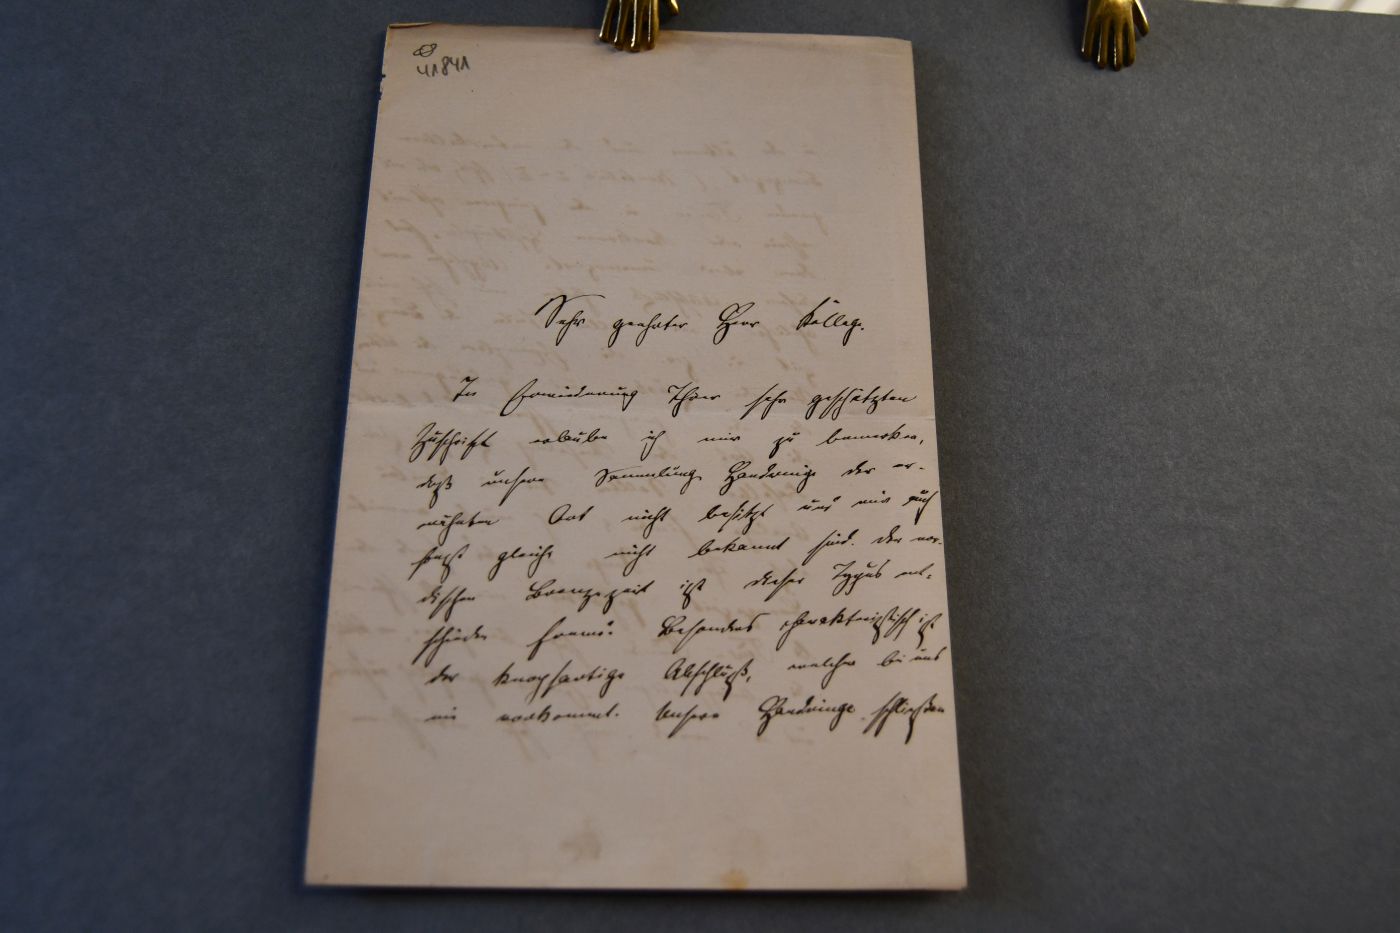 41841
Sehr geehrter Herr Kollege.
In Erwiederung Ihrer sehr geschätzten
Zuschrift erlaube ich mir zu bemerken,
daß unsere Sammlung Handringe der er-
wähnten Art nicht besitzt und mir auch
sonst gleiche nicht bekannt sind. Der nor-
dischen Bronzezeit ist dieser Typus ent-
schieden fremd. Besonders charakteristisch ist
der knopfartige Abschluß, welcher bei uns
nie vorkommt. Unsere Handringe schließen